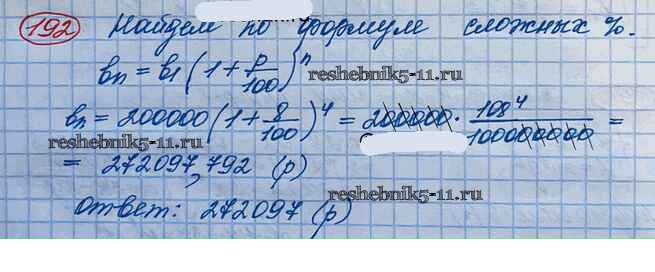 192 Найдем по формуле сложных %.
bn = b1 (1 + p/100)^n
reshebnik5-11.ru
bn = 200000 (1 + 8/100)^4 = 200000 · 108^4/100000000 =
reshebnik5-11.ru
= 272097,792 (р)
reshebnik5-11.ru
ответ: 272097 (р)